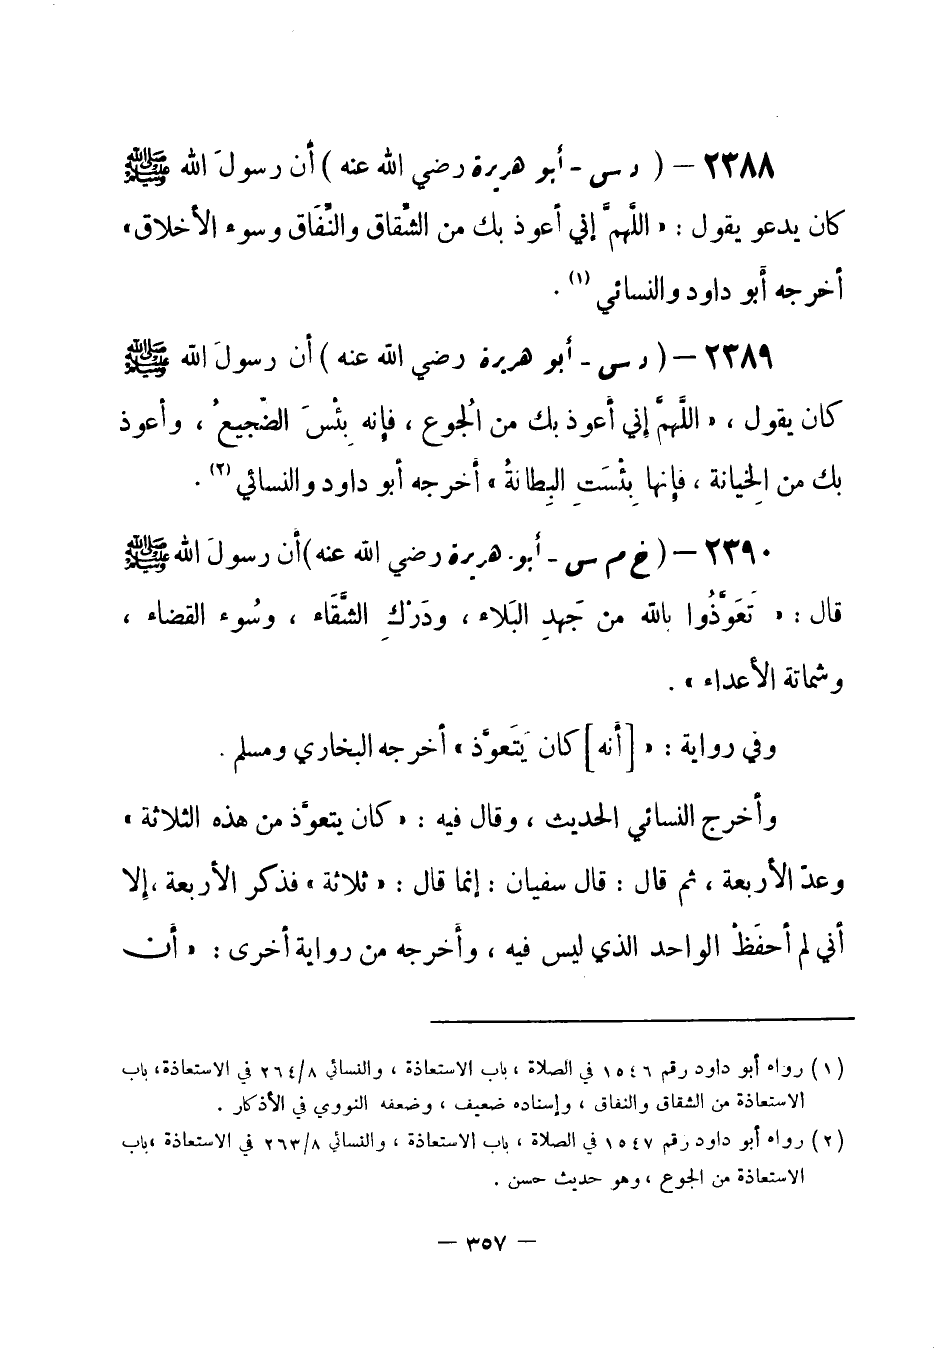 ٢٣٨٨ – ( د س - أبو هريرة رضي الله عنه ) أن رسولَ الله ﷺ
كان يدعو يقول : « اللَّهمَّ إني أعوذ بك من الشِّقاق والنِّفَاق وسوء الأخلاق»
أخرجه أبو داود والنسائي (١) .
٢٣٨٩ – ( د س - أبو هريرة رضي الله عنه ) أن رسولَ الله ﷺ
كان يقول ، « اللَّهمَّ إني أعوذ بك من الجُوع ، فإنه بِئْسَ الضَّجيعُ ، وأعوذ
بك من الخِيانة ، فإنها بِئْسَتِ البِطانةُ » أخرجه أبو داود والنسائي (٢) .
٢٣٩٠ – ( خ م س - أبو هريرة رضي الله عنه )أن رسولَ الله ﷺ
قال : « تَعَوَّذُوا بالله من جَهدِ البَلاء ، ودَرْكِ الشَّقَاء ، وسُوء القضاء ،
وشماتة الأعداء » .
وفي رواية : « [أنه] كان يَتَعوَّذ » أخرجه البخاري ومسلم .
وأخرج النسائي الحديث ، وقال فيه : « كان يتعوَّذ من هذه الثلاثة »
وعدّ الأربعة ، ثم قال : قال سفيان : إنما قال : « ثلاثة » فذكر الأربعة ،إلا
أني لم أحفَظْ الواحد الذي ليس فيه ، وأخرجه من رواية أخرى : « أن
(١) رواه أبو داود رقم ١٥٤٦ في الصلاة ، باب الاستعاذة ، والنسائي ٢٦٤/٨ في الاستعاذة، باب
الاستعاذة من الشقاق والنفاق ، وإسناده ضعيف ، وضعفه النووي في الأذكار .
(٢) رواه أبو داود رقم ١٥٤٧ في الصلاة ، باب الاستعاذة ، والنسائي ٢٦٣/٨ في الاستعاذة ،باب
الاستعاذة من الجوع ، وهو حديث حسن .
– ٣٥٧ –